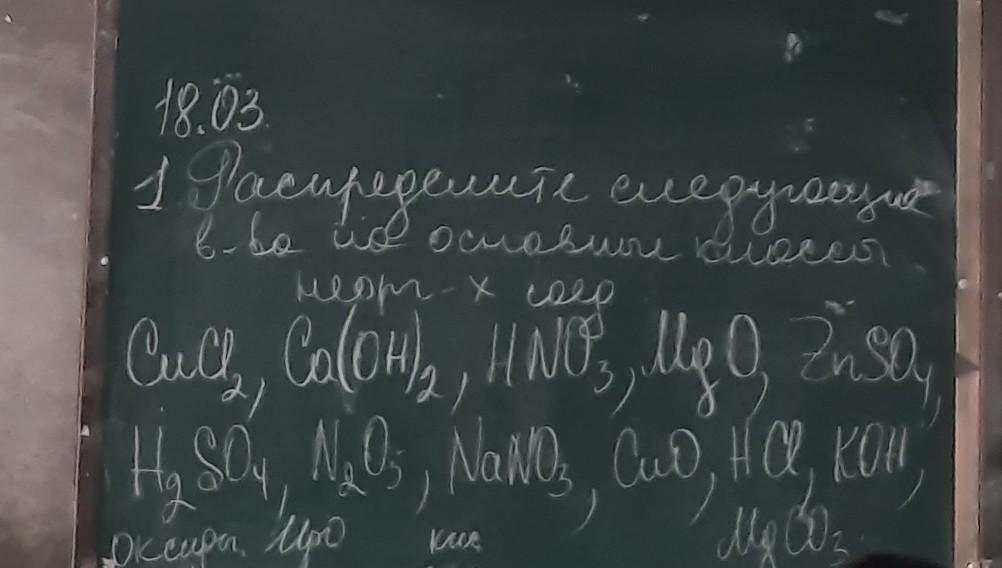 18.03.
1 Распределите следующие
в-ва на основные классы
неорг-х соед
CuCl₂, Ca(OH)₂, HNO₃, MgO, ZnSO₄,
H₂SO₄, N₂O₅, NaNO₃, CuO, HCl, KOH,
оксиды кис MgCO₃